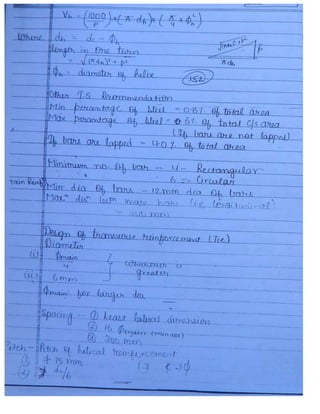 Vh = (1000/P) × (π dh) × (π/4 × φh²)
Where dh = dc - φh
length in one turn
= √(πdh)² + p²
√(πdh)² + p²
p
πdh
φh = diameter of helix
152
Other I.S Recommendation
Min percentage of steel = 0.8% of total area
Max percentage of steel = 6% of total c/s area
(If bars are not lapped)
If bars are lapped = 4.0% of total area
Minimum no of bar — 4 - Rectangular
6 - Circular
Min dia of bars — 12mm dia of bars
Max dis betn main bars (i.e longitudinal)
= 300 mm
Design of transverse reinforcement (Tie)
Diameter
(i) φmain/4
(ii) 6mm
} whichever is greater
φmain for larger dia
Spacing — ① Least lateral dimension
② 16 φmain (min dia)
③ 300 mm
Pitch - Pitch of helical reinforcement
(1) ≯ 75 mm
(2) ≯ dc/6